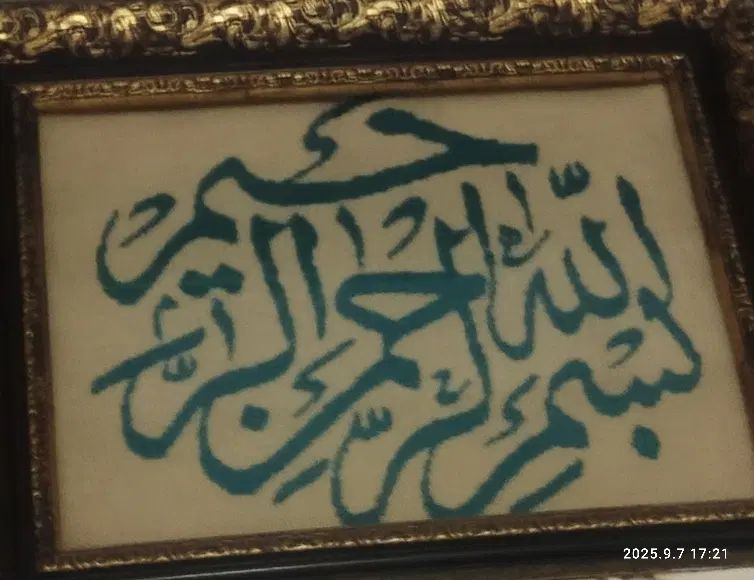 بسم الله الرحمن الرحيم
2025.9.7 17:21